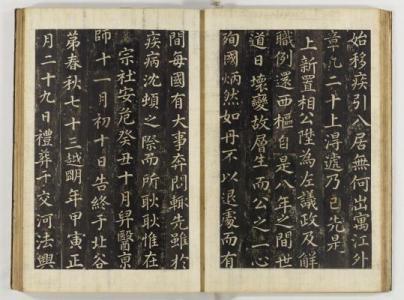 始移疾引入居無何出寓江外
章凡二十上得遞乃已先是
上新置相公陞為左議政及解
職例還西樞自是八年之間世
道日壞變故層生而公之一心
殉國炳然如丹不以退處而有
間每國有大事奔問輒先雖於
疾病沈頓之際而所耿耿惟在
宗社安危癸丑十月舁醫京
師十一月初十日告終于北谷
第春秋七十三越明年甲寅正
月二十九日禮葬于交河法興